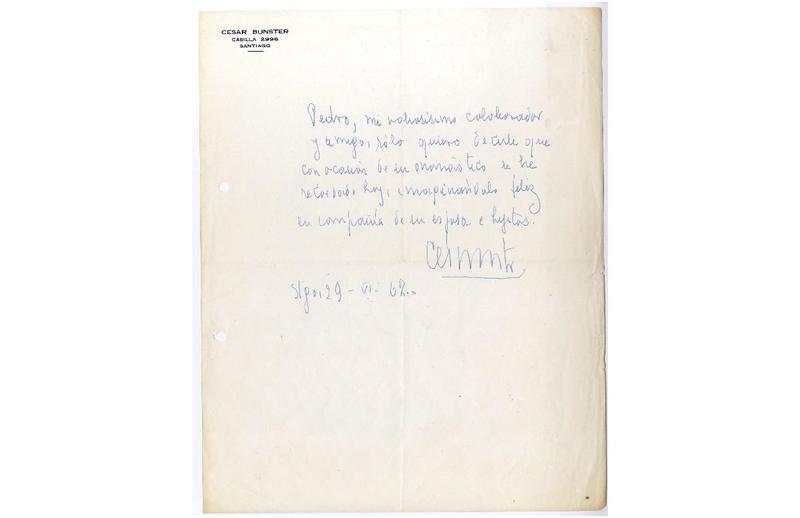 CESAR BUNSTER
CASILLA 2996
SANTIAGO
Pedro, mi valiosísimo colaborador
y amigo, sólo quiero decirle que
con ocasión de su onomástico le he
recordado hoy, imaginándolo feliz
en compañía de su esposa e hijitas.
Stgo, 29 - VI - 62.-